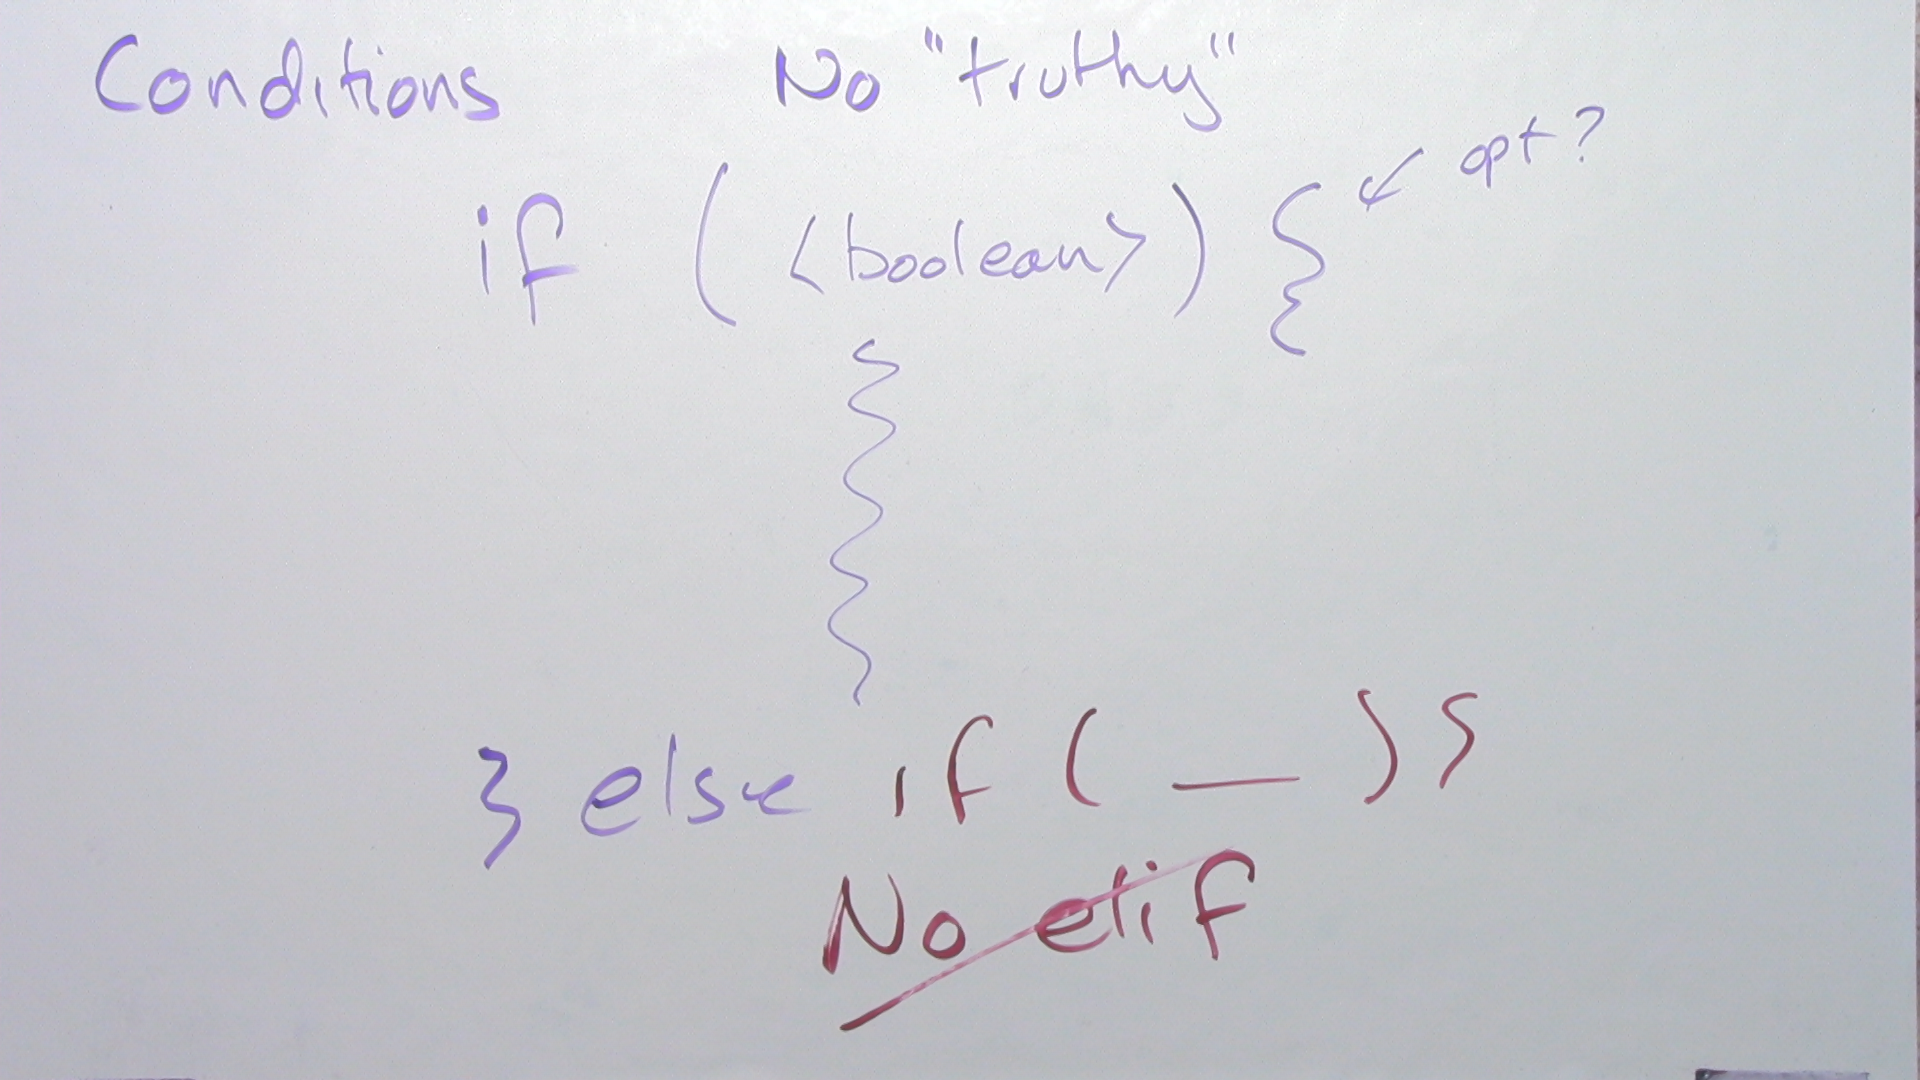 Conditions No "truthy"
opt?
if (<boolean>) {
} else if ( __ ) {
No elif